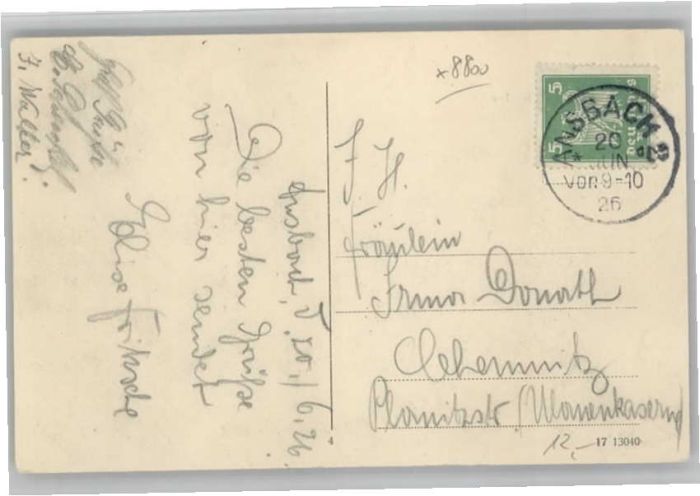 Ansbach, d. 20./6.26.
Die besten Grüße
von hier sendet
Elise Fritzsche
Viel Grüße
F. Walter.
*8800
5 5
ANSBACH 2
20 JUN
Vor. 9-10
26
I. H.
Fräulein
Irma Donath
Chemnitz
Planitzstr. (Ulanenkaserne)
12,-
17 13040
4